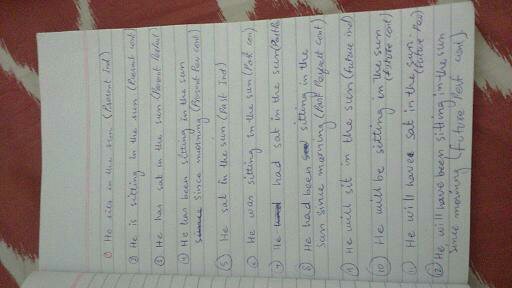 ① He sits in the sun (Present Ind)
② He is sitting in the sun (Present cont)
③ He has sat in the sun (Present Perfect
④ He has been sitting in the sun
since morning (Present Per cont)
⑤ He sat in the sun (Past Ind)
⑥ He was sitting in the sun (Past con)
⑦ He had sat in the sun (Past Per
⑧ He had been sitting in the
sun since morning (Past Perfect cont)
⑨ He will sit in the sun (future ind)
⑩ He will be sitting in the sun
(future cont)
⑪ He will have sat in the sun.
(future Per)
⑫ He will have been sitting in the sun
since morning (future Perf cont)